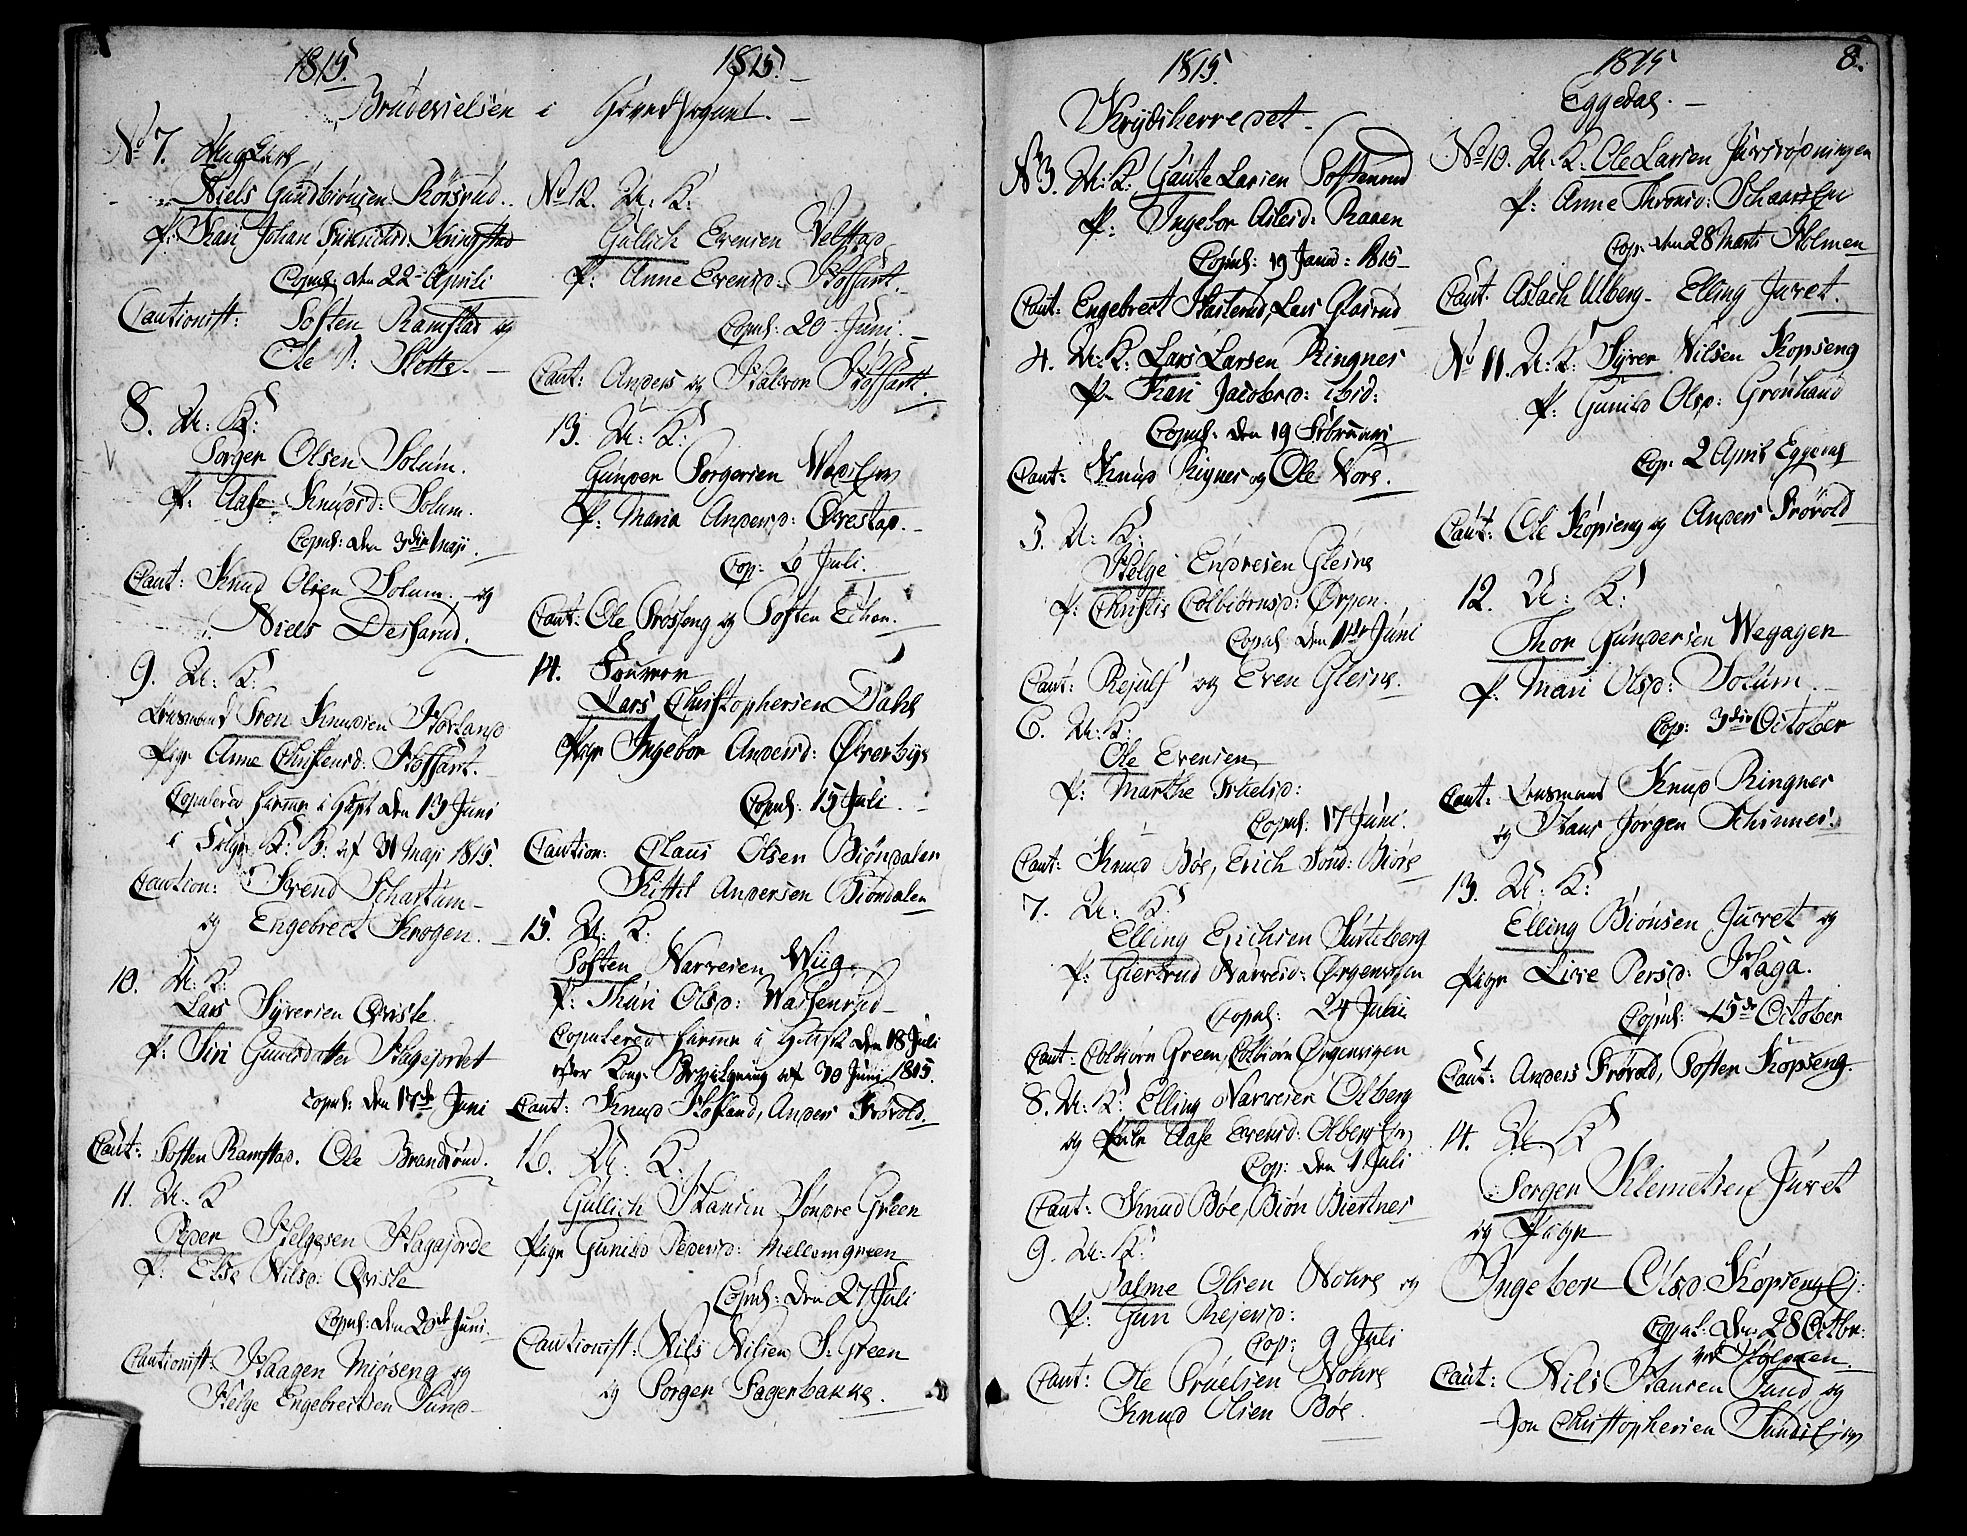 1815.
Brudevielser i Hovedsognet.
No 7. Ung Karl
Niels Gundbiørnsen Rørsrud.
P: Kari Johan Frinrichsd: Kringstad
Copul: den 22 Aprili
Cautionist: Tosten Ramstad og
Ole Slette.
8. U: K:
Torger Olsen Solum.
P: Aase Knudsd: Solum.
Copul: den 3die Maji.
Caut: Knud Olsen Solum og
Niels Desserud.
9. U: K:
Lensmand Sven Knudsen Hovland
Pigr Anne Christensd: Hoffart.
Copulered hiemme i Huset den 13 Juni
i Følge K: B: af 31 Maji 1815.
Caution: Svend Schartum
og Engebrect Krogen.
10. U: K:
Lars Syversen Qviske
P: Siri Gunlsdatter Hagejordet
Copul: den 17de Juni
Caut: Tosten Ramstad. Ole Brandsrud.
11. U: K
Peder Helgesen Hagajorde
P: Else Nilsd: Qviske
Copul: den 20de Juni.
Cautionist: Haagen Miøseng og
Helge Engebrectsen Sund
1815.
No 12. U: K:
Gullich Evensen Velstad
P: Anne Evensd: Hoffart.
Copul: 20 Juni.
Caut: Anders og Halvor Hoffart.
13. U: K:
Gunder Torgersen
P: Maria Andersd: Ørestad.
Cop: 6 Juli.
Caut: Ole Frøsseng og Tosten Echon.
14.
Lars Christophersen Dahl
Pigr Ingebor Andersd: Øverbye
Copul: 15 Juli.
Caution: Claus Olsen Biøndalen
Kittil Andersen Biøndalen
15. U: K:
Tosten Narvesen Wiig
P: Thuri Olsd: Walsenrud
Copulered hiemme i Huset den 18 Juli
efter Kong: Bevilgning af 30 Juni 1815.
Caut: Knud Hofland, Anders Frøvold.
16. U: K:
Gullich Hansen Søndre Green
Pigr Gunild Pedersd: Mellemgreen
Copul: den 27 Juli
Cautionist: Nils Nilsen S: Green
og Torger Fagerbakke.
1815.
Krydsherredet.
No 3. U: K: Gaute Larsen Tostenrud
P: Ingebor Aslesd: Raaen
Copul: 19 Janu: 1815
Caut: Engebrect Skalerud, Lars Glasrud
4. U: K: Lars Larsen Ringnes
P: Kari Jacobsd: ibid:
Copul: den 19 Februari
Caut: Knud Rignes og Ole Nore.
5. U: K:
Helge Endresen Glesne
P: Christie Colbiørnsd: Ørpen.
Copul den 11te Juni
Caut: Rejulf og Even Glesne.
6. U: K:
Ole Evensen
P: Marthe Truelsd:
Copul: 17 Juni.
Caut: Knud Bøe, Erich Sønd: Biøre
7. U: K:
Elling Erichsen Surteberg
P: Giertrud Narvesd: Ørgenvigen
Copul: 24 Juni
Caut: Colbiørn Green, Colbiørn Ørgenvigen
8. U: K: Elling Narvesen Olberg
og Pige Aase Evensd: Olberg Eje
Cop: den 1 Juli
Caut: Knud Bøe, Biørn Biertnes
9. U: K:
Palme Olsen Nohre og
P: Gun Rejersd:
Cop: 9 Juli
Caut: Ole Truelsen Nohre
Knud Olsen Bøe.
1815 8.
Eggedal.
No 10. U: K: Ole Larsen
P: Anne Thronsd:
Cop: den 28 Marts Holmen
Caut: Aslach Ulberg Elling Juvet.
No 11. U: K: Syver Nilsen Kopseng
P: Gunild Olsd: Grønhaud
Cop: 2 April Eggedal
Caut: Ole Kopseng og Anders Frøvold
12. U: K:
Thor Gundersen Wegagen
P: Mari Olsd: Solum
Cop: 3die October
Caut: Lensmand Knud Ringnes
og Hans Jørgen Schinnes.
13. U: K:
Elling Biørnsen Juvet og
Pigr Live Persd: Haga.
Copul: 15de October
Caut: Anders Frøvold, Tosten Kopseng.
14. U: K
Torger Klemetsen Juvet
og Pigr
Ingebor Olsd: Kopseng Ej:
Copul: den 28 Octbr:
ved Holmen
Caut: Nils Hansen Sund og
Jon Christophersen Sunds Eje